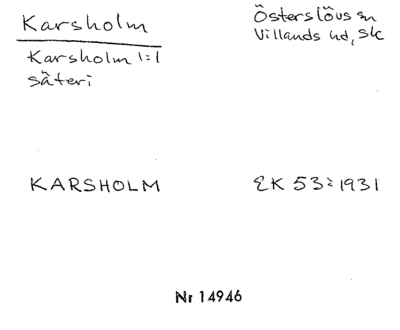 Karsholm
Österslövs sn
Villands hd, Sk
Karsholm 1:1
säteri
KARSHOLM
EK 53: 1931
Nr 14946